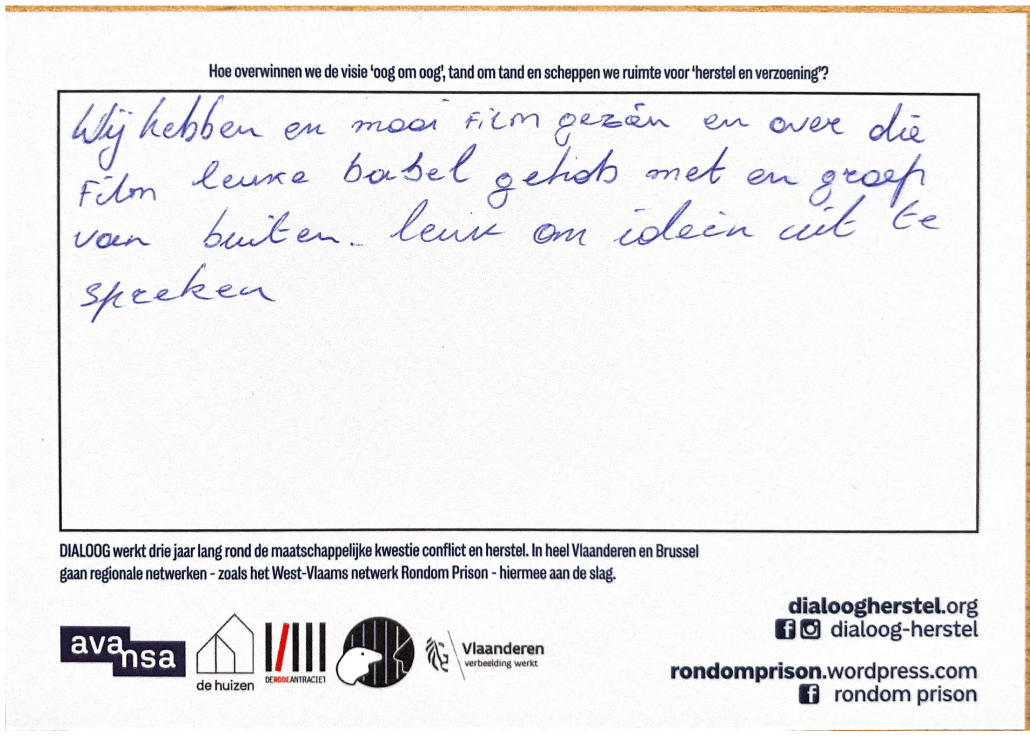 Hoe overwinnen we de visie 'oog om oog', tand om tand en scheppen we ruimte voor 'herstel en verzoening'?
Wij hebben en mooi Film gezien en over die
Film leuke babel gehab met en groep
van buiten. leuk om ideein uit te
spreken
DIALOOG werkt drie jaar lang rond de maatschappelijke kwestie conflict en herstel. In heel Vlaanderen en Brussel
gaan regionale netwerken - zoals het West-Vlaams netwerk Rondom Prison - hiermee aan de slag.
avansa
de huizen
DERODEANTRACIET
Vlaanderen
verbeelding werkt
dialoogherstel.org
dialoog-herstel
rondomprison.wordpress.com
rondom prison